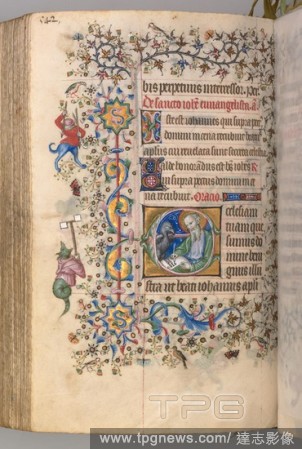 bis perpetuus intercessor. per
De sancto iohē euuangelista. a
Iste est iohannes qui supra pec
domini in cena recubuit beatꝰ
aplūs cui reuelata sunt secreta celestia
Valde honorandus est bt̄s iohēs R
Qui supra pectus domini in ce
na recubuit. Oratio.
Ecclesiam
tuam que
sumus do
mine beni
gnus illu
stra ut beati iohannis apli
TPG
www.tpgnews.com/ 達志影像